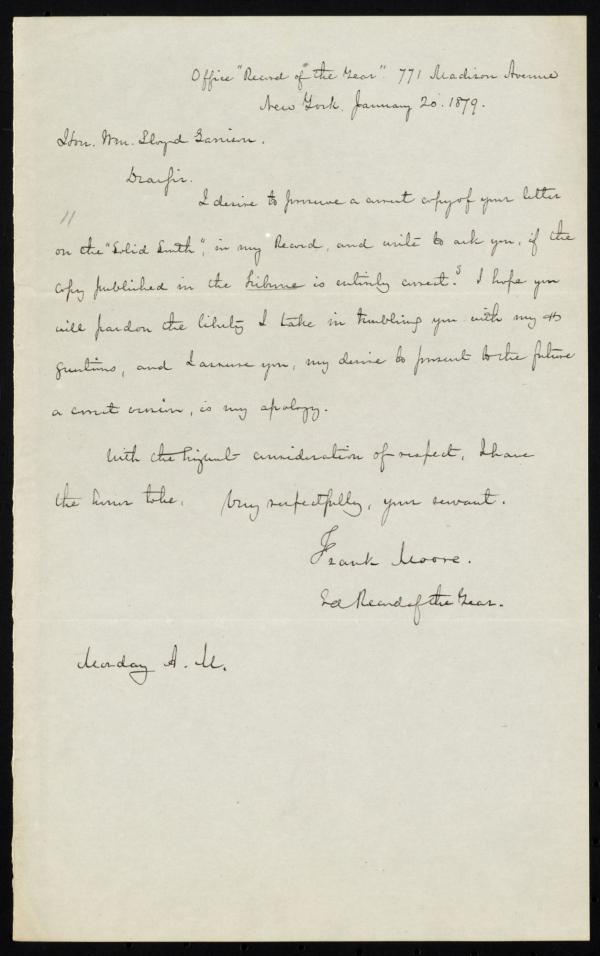 Office "Record of the Year". 771 Madison Avenue
New York. January 20. 1879.
Hon. Wm. Lloyd Garrison.
Dear Sir.
I desire to preserve a correct copy of your letter
on the "Solid South", in my Record, and write to ask you, if the
copy published in the Tribune is entirely correct. I hope you
will pardon the liberty I take in troubling you with my
questions, and I assure you, my desire to present to the future
a correct version, is my apology.
With the highest consideration of respect, I have
the honor to be, Very respectfully, your servant.
Frank Moore.
Ed Record of the Year.
Monday A. M.